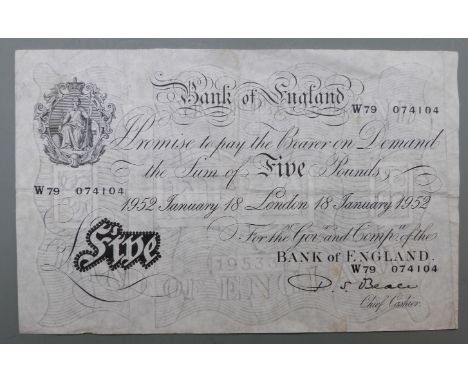 Bank of England
W79 074104
I Promise to pay the Bearer on Demand
the Sum of Five Pounds
W79 074104
1952 January 18 London 18 January 1952
For the Govr. and Compa. of the
Five
BANK of ENGLAND.
W79 074104
P. S. Beale
Chief Cashier.